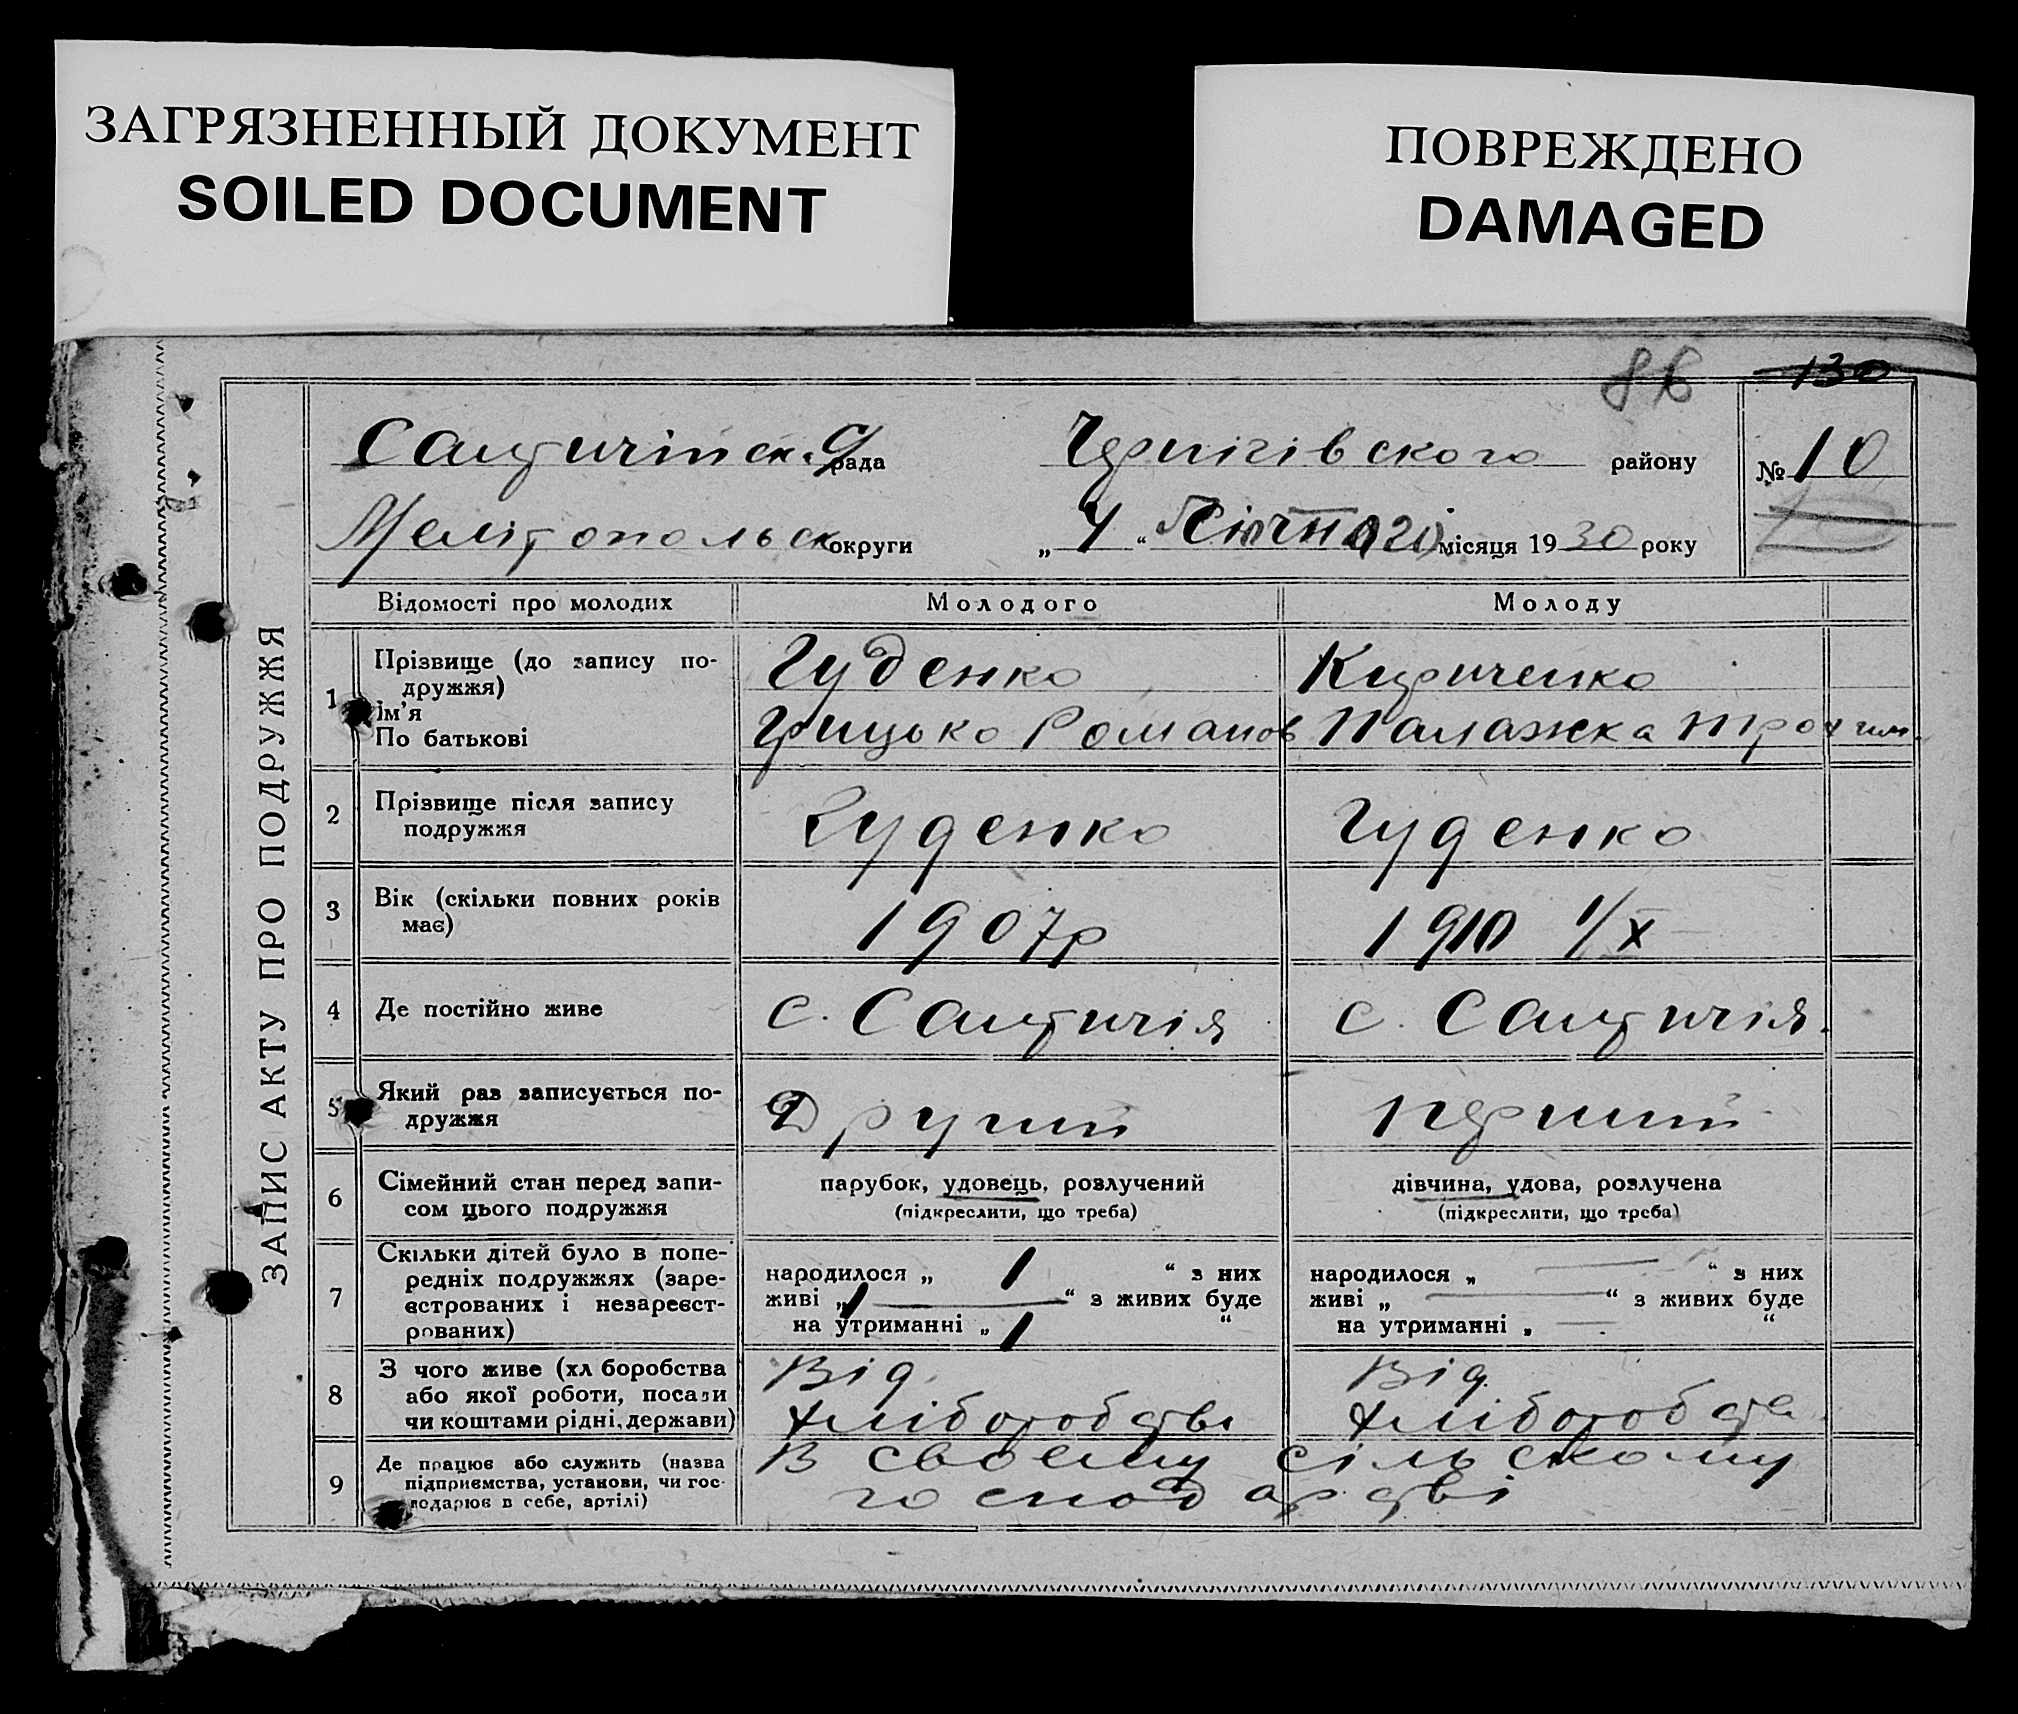 ЗАГРЯЗНЕННЫЙ ДОКУМЕНТ
SOILED DOCUMENT
ПОВРЕЖДЕНО
DAMAGED
86 130
рада Чернігівського району № 10
Мелітопольск округи „ 4 “ місяця 1930 року
ЗАПИС АКТУ ПРО ПОДРУЖЖЯ
Відомості про молодих Молодого Молоду
1 Прізвище (до запису по-
дружжя)
Ім'я
По батькові
Гуденко
Грицько Романов
Кириченко
Палажка Трохим.
2 Прізвище після запису
подружжя
Гуденко Гуденко
3 Вік (скільки повних років
має)
1907р 1910 1/X
4 Де постійно живе с. Салтичія с. Салтичія.
5 Який раз записується по-
дружжя
Другий перший
6 Сімейний стан перед запи-
сом цього подружжя
парубок, удовець, розлучений
(підкреслити, що треба)
дівчина, удова, розлучена
(підкреслити, що треба)
7 Скільки дітей було в попе-
редніх подружжях (заре-
єстрованих і незареєст-
рованих)
народилося „ 1 “ з них
живі „ 1 — “ з живих буде
на утриманні „ 1 “
народилося „ — “ з них
живі „ — “ з живих буде
на утриманні „ — “
8 З чого живе (хл боробства
або якої роботи, посади
чи коштами рідні, держави)
Від
хліборобства
Від
хліборобства
9 Де працює або служить (назва
підприємства, установи, чи гос-
подарює в себе, артілі)
В своєму сільському
господарстві